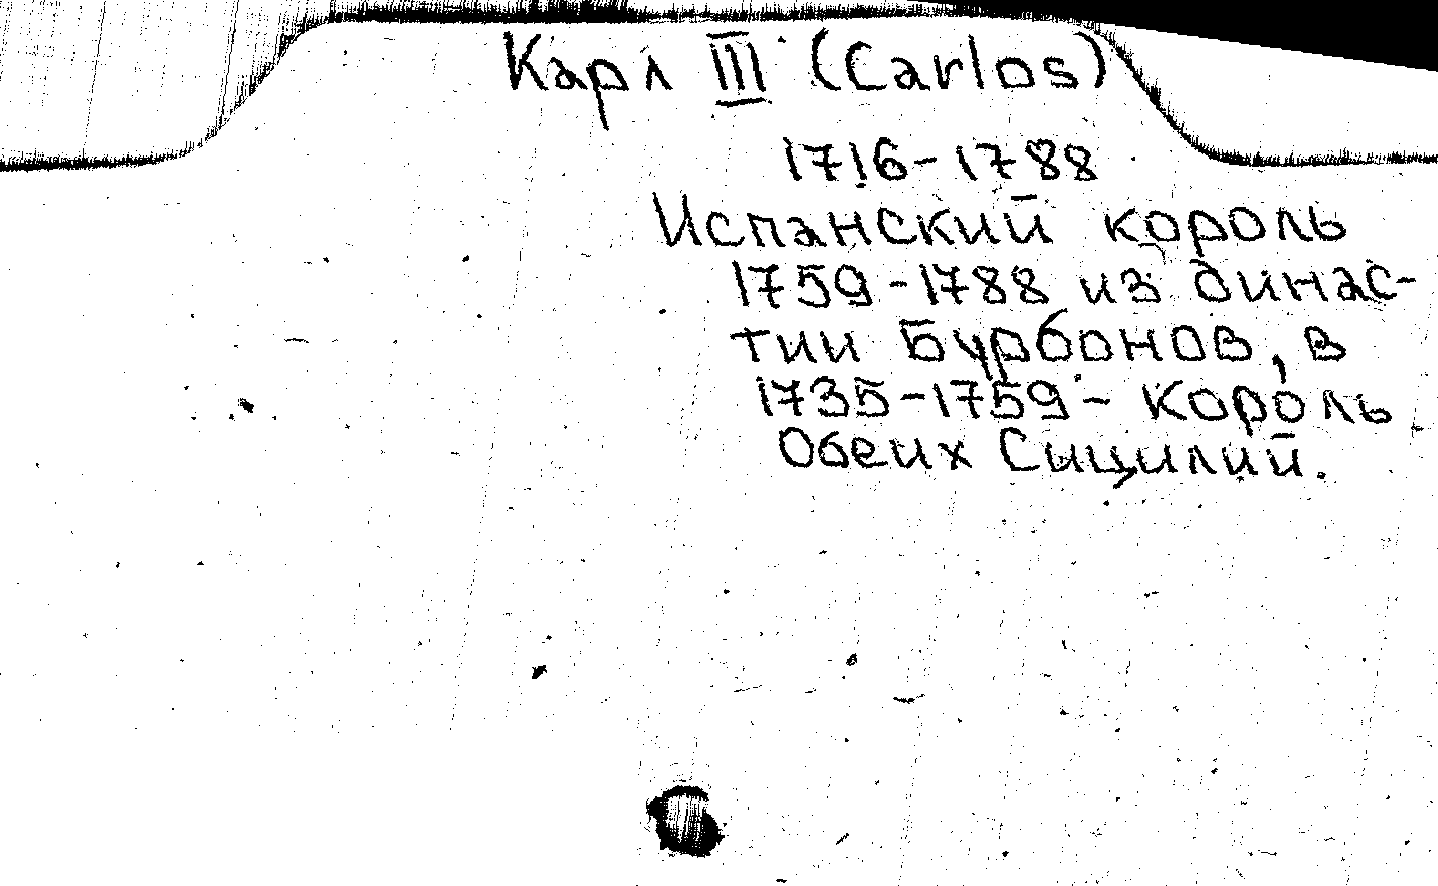 Карл III (Carlos)
1716-1788
Испанский король
1759-1788 из динас-
тии Бурбонов, в
1735-1759 - король
Обеих Сицилий.